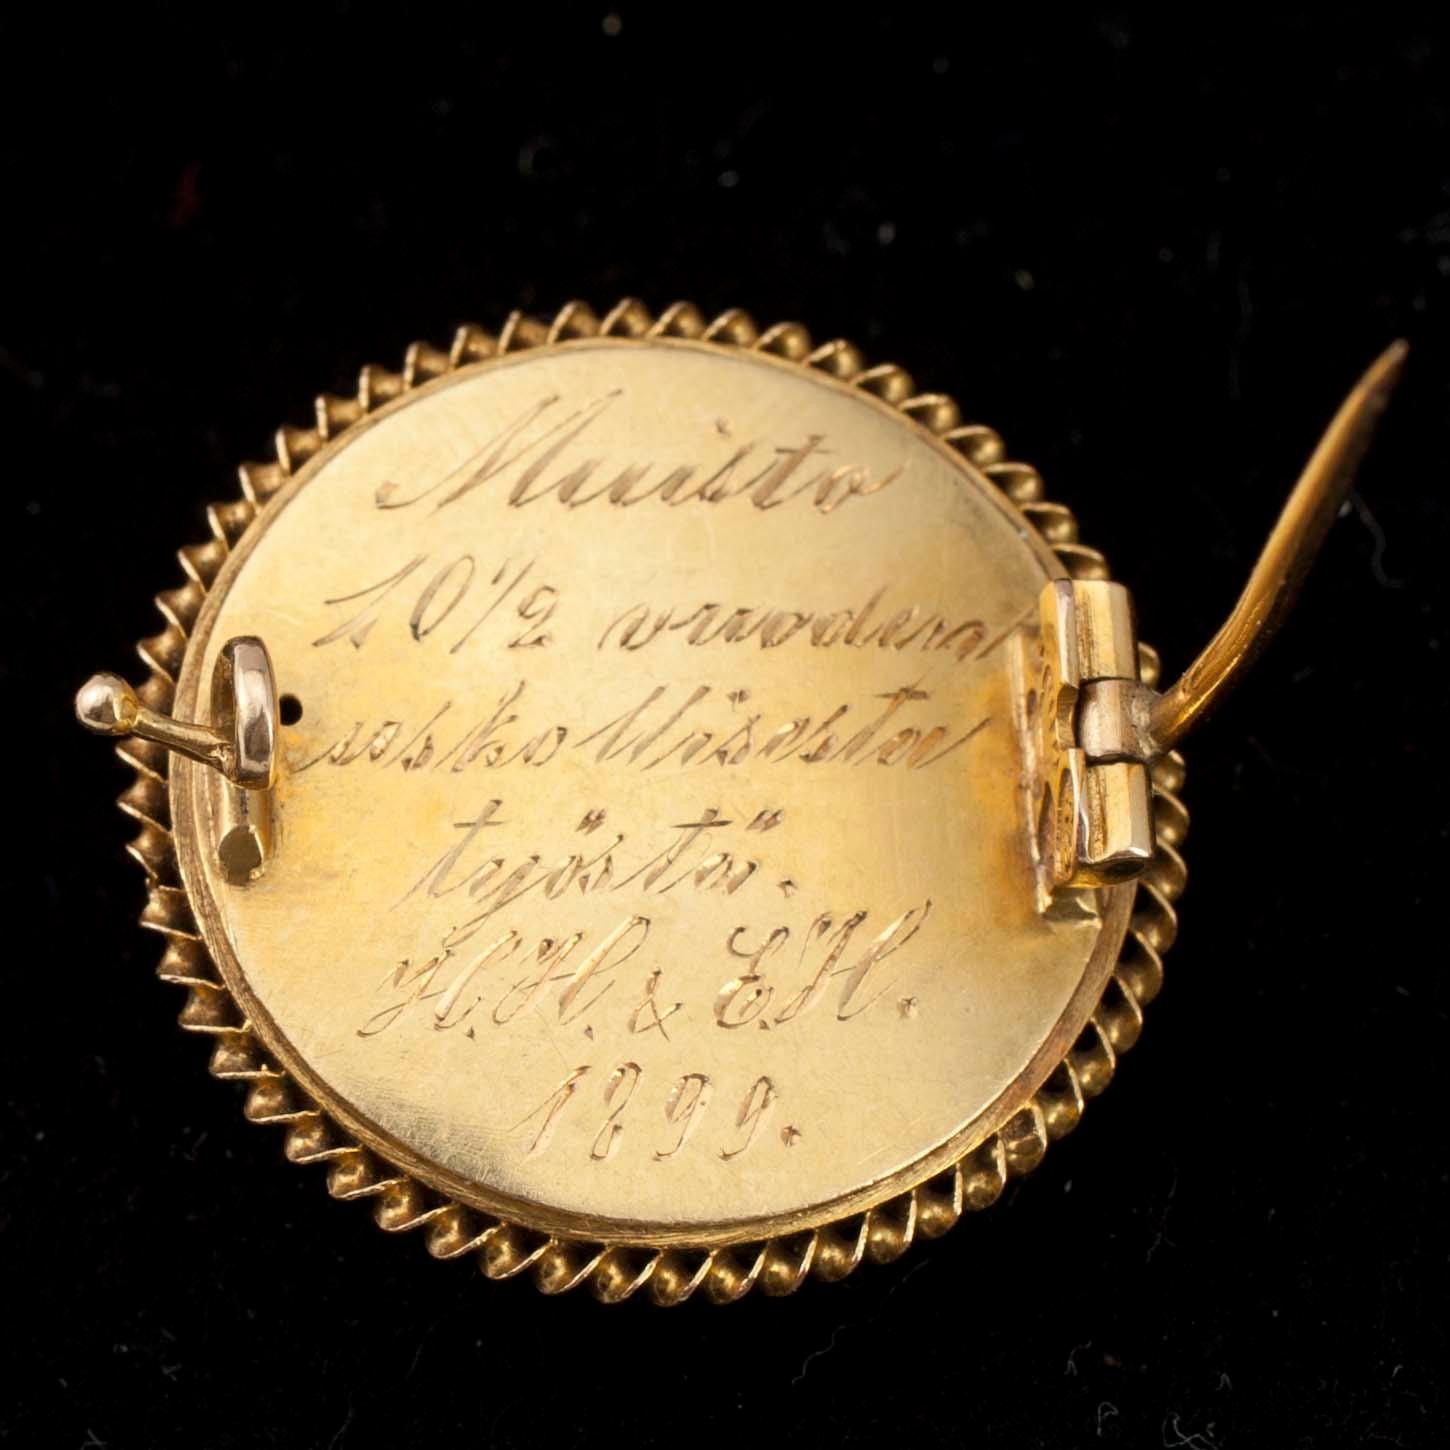 Muisto
10 1/2 vuoden
uskollisesta
työstä.
H.H. & E.H.
1899.